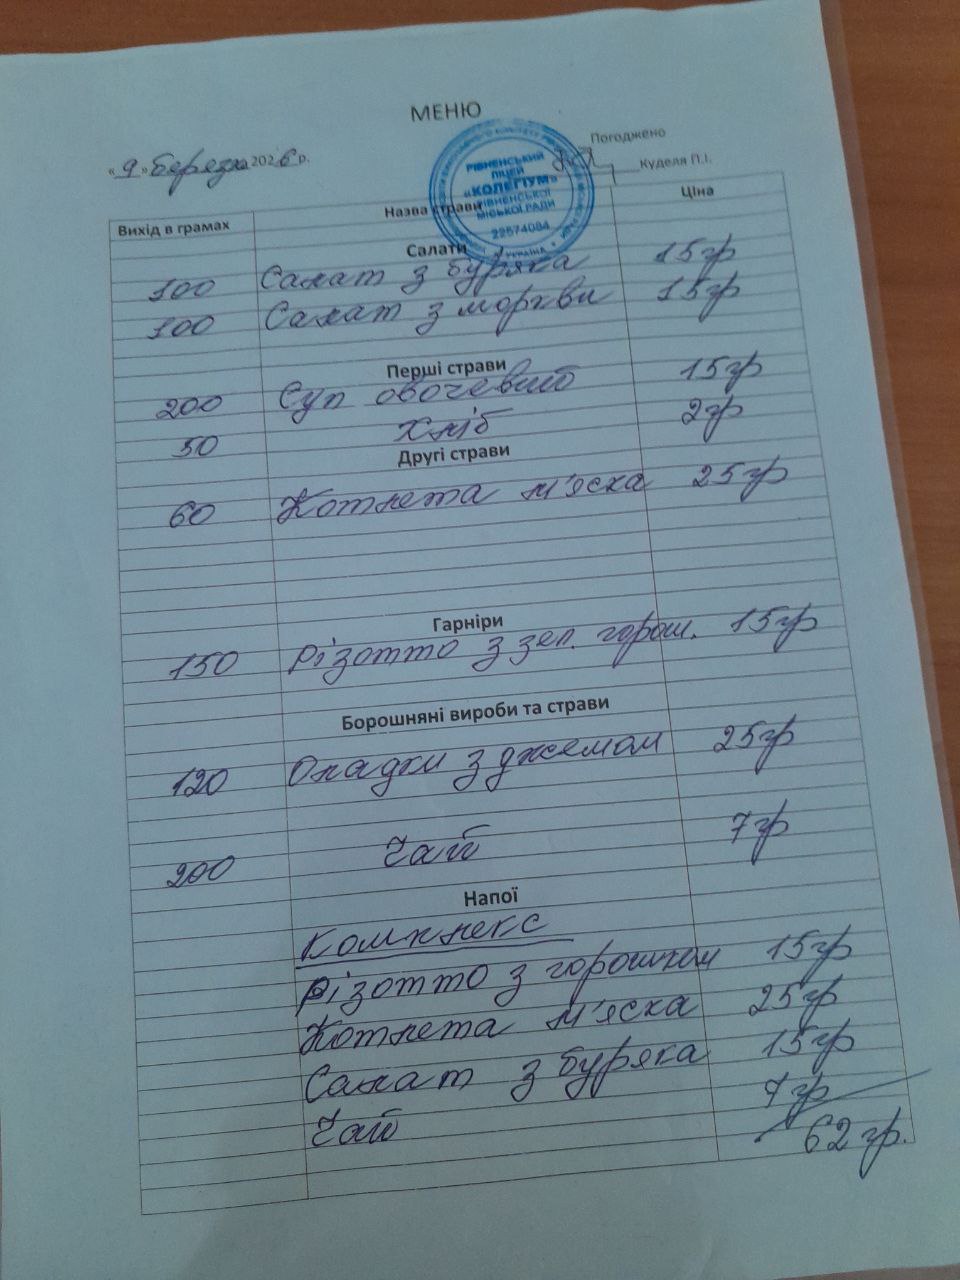 МЕНЮ
Погоджено
«9» березня 2026 р.
Куделя П.І.
РІВНЕНСЬКИЙ
ЛІЦЕЙ
«КОЛЕГІУМ»
РІВНЕНСЬКОЇ
МІСЬКОЇ РАДИ
22574084
УКРАЇНА
Вихід в грамах Назва страви Ціна
Салати
100 Салат з буряка 15гр
100 Салат з моркви 15гр
Перші страви
200 Суп овочевий 15гр
50 Хліб 2гр
Другі страви
60 Котлета м'яска 25гр
Гарніри
150 Різотто з зел. горош. 15гр
Борошняні вироби та страви
120 Оладки з джемом 25гр
200 Чай 7гр
Напої
Комплекс
Різотто з горошком 15гр
Котлета м'яска 25гр
Салат з буряка 15гр
Чай 7гр
62гр.